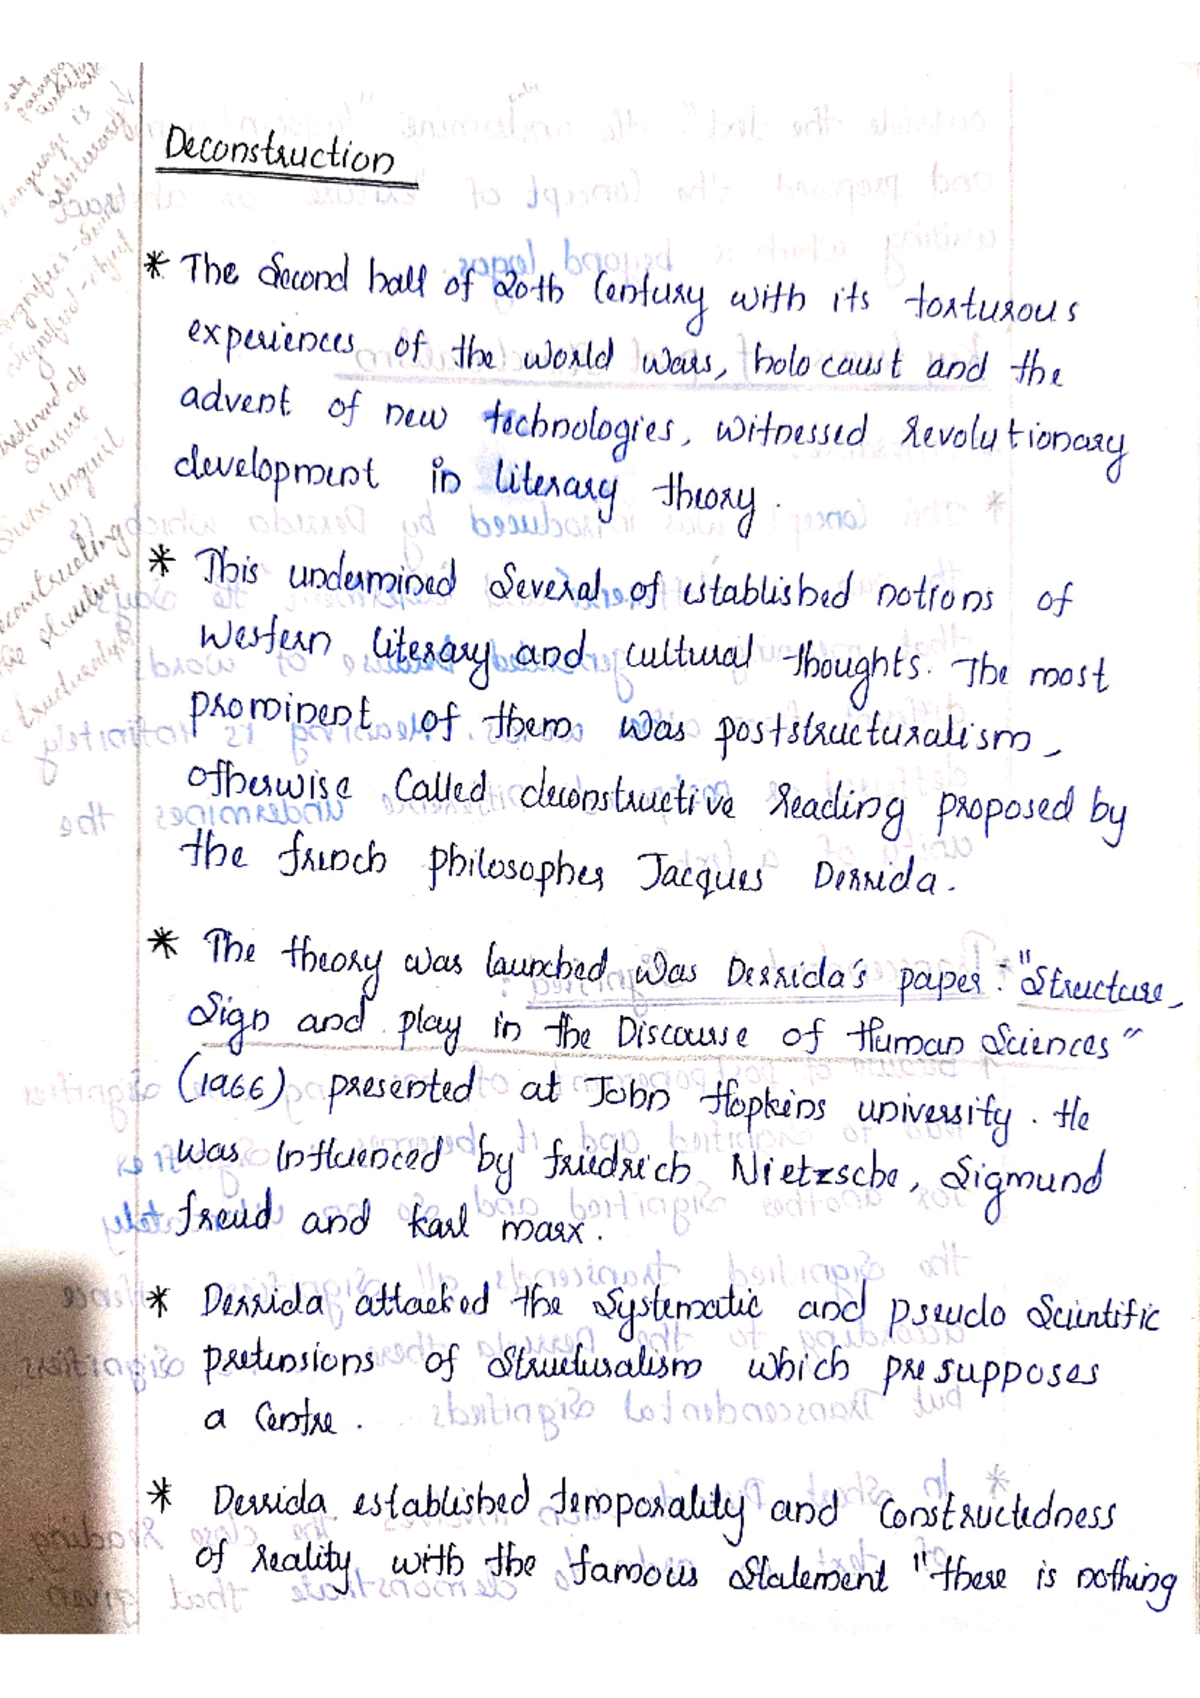 Language is
arbiturary
Signified - object
Swiss linguist
Deconstruction
* The Second half of 20th Century with its torturous
experiences of the world wars, holocaust and the
advent of new technologies, witnessed revolutionary
development in literary theory.
* This undermined Several of established notions of
Western literary and cultural thoughts. The most
prominent of them was poststructuralism,
otherwise Called deconstructive reading proposed by
the french philosopher Jacques Derrida.
* The theory was launched was Derrida's paper: "Structure,
Sign and play in the Discourse of Human Sciences"
(1966) presented at John Hopkins university. He
was Influenced by friedrich Nietzsche, Sigmund
freud and karl marx.
* Derrida attacked the Systematic and pseudo Scientific
pretensions of Structuralism which presupposes
a Centre.
* Derrida established temporality and Constructedness
of reality with the famous Statement "there is nothing